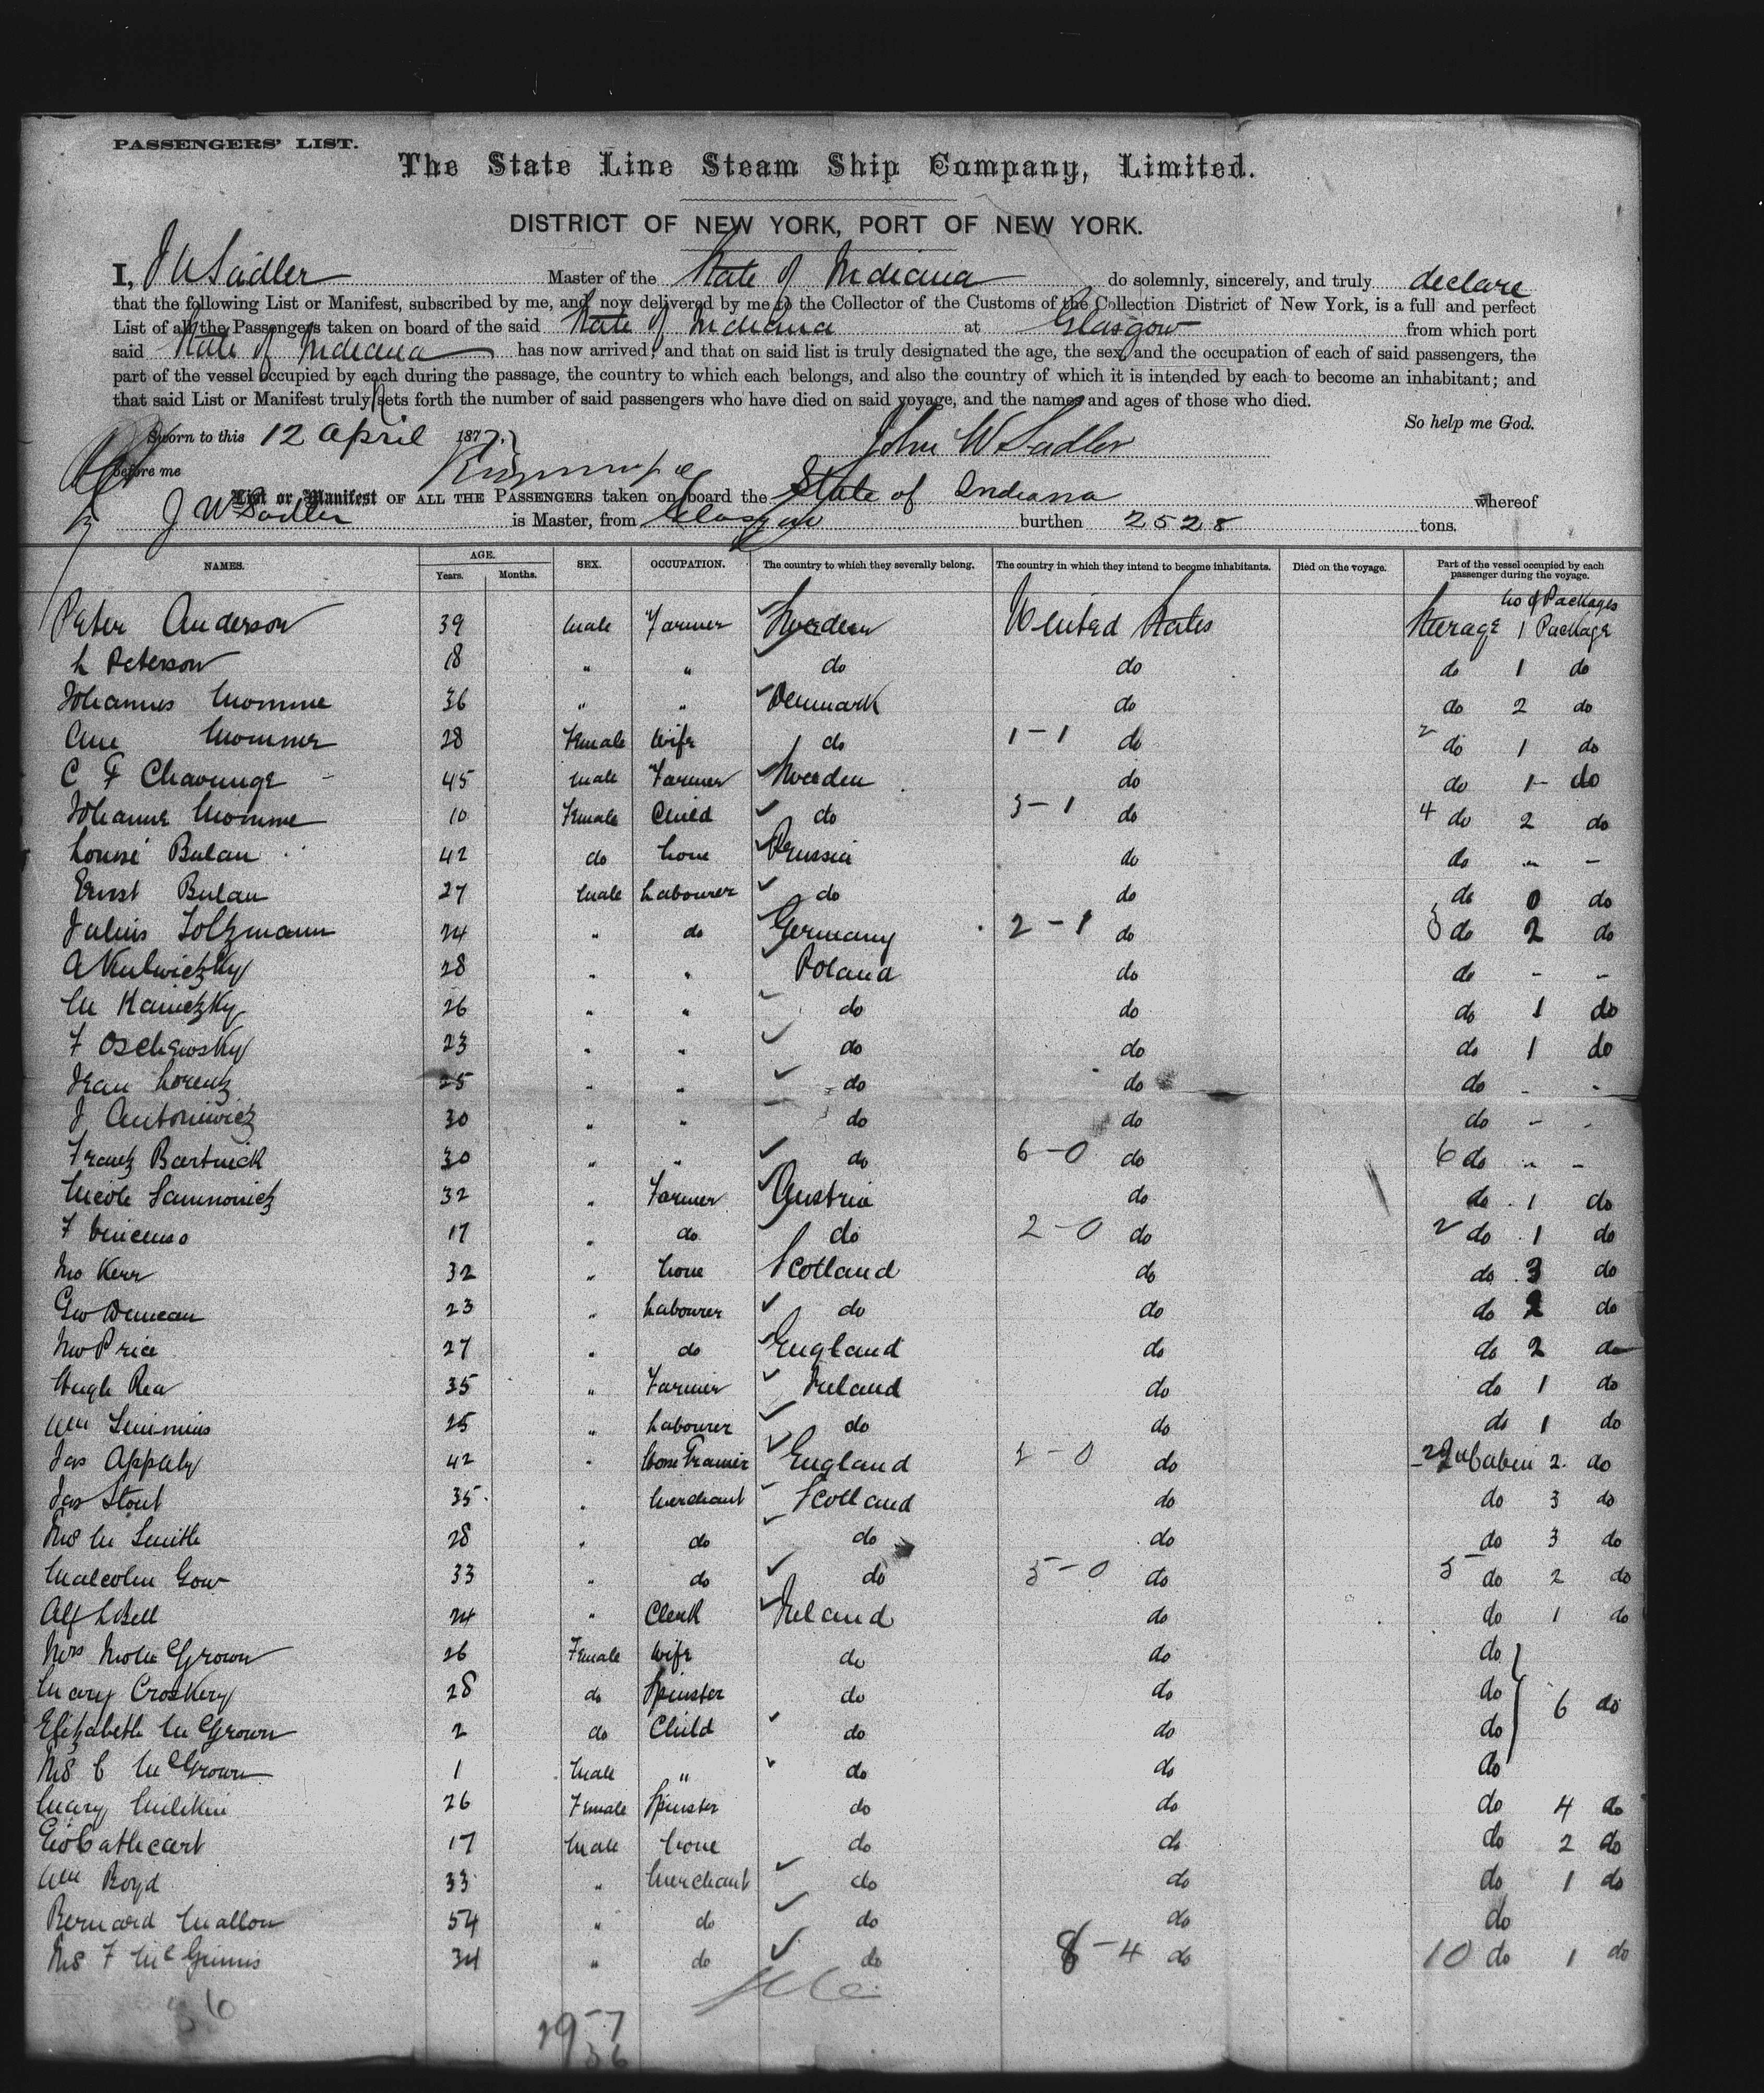 PASSENGERS' LIST.
The State Line Steam Ship Company, Limited.
DISTRICT OF NEW YORK, PORT OF NEW YORK.
I, J W Sadler Master of the State of Indiana do solemnly, sincerely, and truly declare
that the following List or Manifest, subscribed by me, and now delivered by me to the Collector of the Customs of the Collection District of New York, is a full and perfect
List of all the Passengers taken on board of the said State of Indiana at Glasgow from which port
said State of Indiana has now arrived; and that on said list is truly designated the age, the sex, and the occupation of each of said passengers, the
part of the vessel occupied by each during the passage, the country to which each belongs, and also the country of which it is intended by each to become an inhabitant; and
that said List or Manifest truly sets forth the number of said passengers who have died on said voyage, and the names and ages of those who died.
So help me God.
Sworn to this 12 April 1877. John W Sadler
before me
List or Manifest OF ALL THE PASSENGERS taken on board the State of Indiana whereof
J W Sadler is Master, from Glasgow burthen 2528 tons.
NAMES. AGE. Years. Months. SEX. OCCUPATION. The country to which they severally belong. The country in which they intend to become inhabitants. Died on the voyage. Part of the vessel occupied by each passenger during the voyage.
No of Packages
Peter Anderson 39 Male Farmer Sweden United States Steerage 1 Package
L Peterson 18 " " do do do 1 do
Johannes Momme 36 " " Denmark do do 2 do
Ane Momme 28 Female Wife do 1-1 do 2 do 1 do
C F 45 Male Farmer Sweden do do 1 do
Johanne Momme 10 Female Child do 3-1 do 4 do 2 do
Louise Bulau 42 do None Prussia do do " -
Ernst Bulau 27 Male Labourer do do do 0 do
Julius Toltzmann 24 " do Germany 2-1 do 3 do 2 do
28 " " Poland do do - -
M Kanietzky 26 " " do do do 1 do
F 23 " " do do do 1 do
Jean Lorenz 25 " " do do do - -
J Antoniwicz 30 " " do do do - -
Franz Bartnick 30 " " do 6-0 do 6 do " -
32 " Farmer Austria do do 1 do
F Vincenso 17 " do do 2-0 do 2 do 1 do
Jno Kerr 32 " None Scotland do do 3 do
Geo Duncan 23 " Labourer do do do 2 do
Jno Price 27 " do England do do 2 do
Hugh Rea 35 " Farmer Ireland do do 1 do
Wm Simmins 25 " Labourer do do do 1 do
Jas Appleby 42 " England 2-0 do Cabin 2 do
Jas Stout 35 " Merchant Scotland do do 3 do
M Smith 28 " do do do do 3 do
Malcolm Gow 33 " do do 3-0 do 3 do 2 do
Alf L Bell 24 " Clerk Ireland do do 1 do
Mrs McGrown 26 Female Wife do do do
Mary Croskery 28 do Spinster do do do 6 do
Elizabeth McGrown 2 do Child do do do
C McGrown 1 Male " do do do
Mary Milikin 26 Female Spinster do do do 4 do
Geo Cathcart 17 Male None do do do 2 do
Wm Boyd 33 " Merchant do do do 1 do
Bernard Mallon 54 " do do do do
F McGinnis 34 " do do 8-4 do 10 do 1 do
36
36